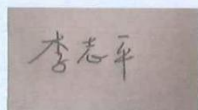 李志平